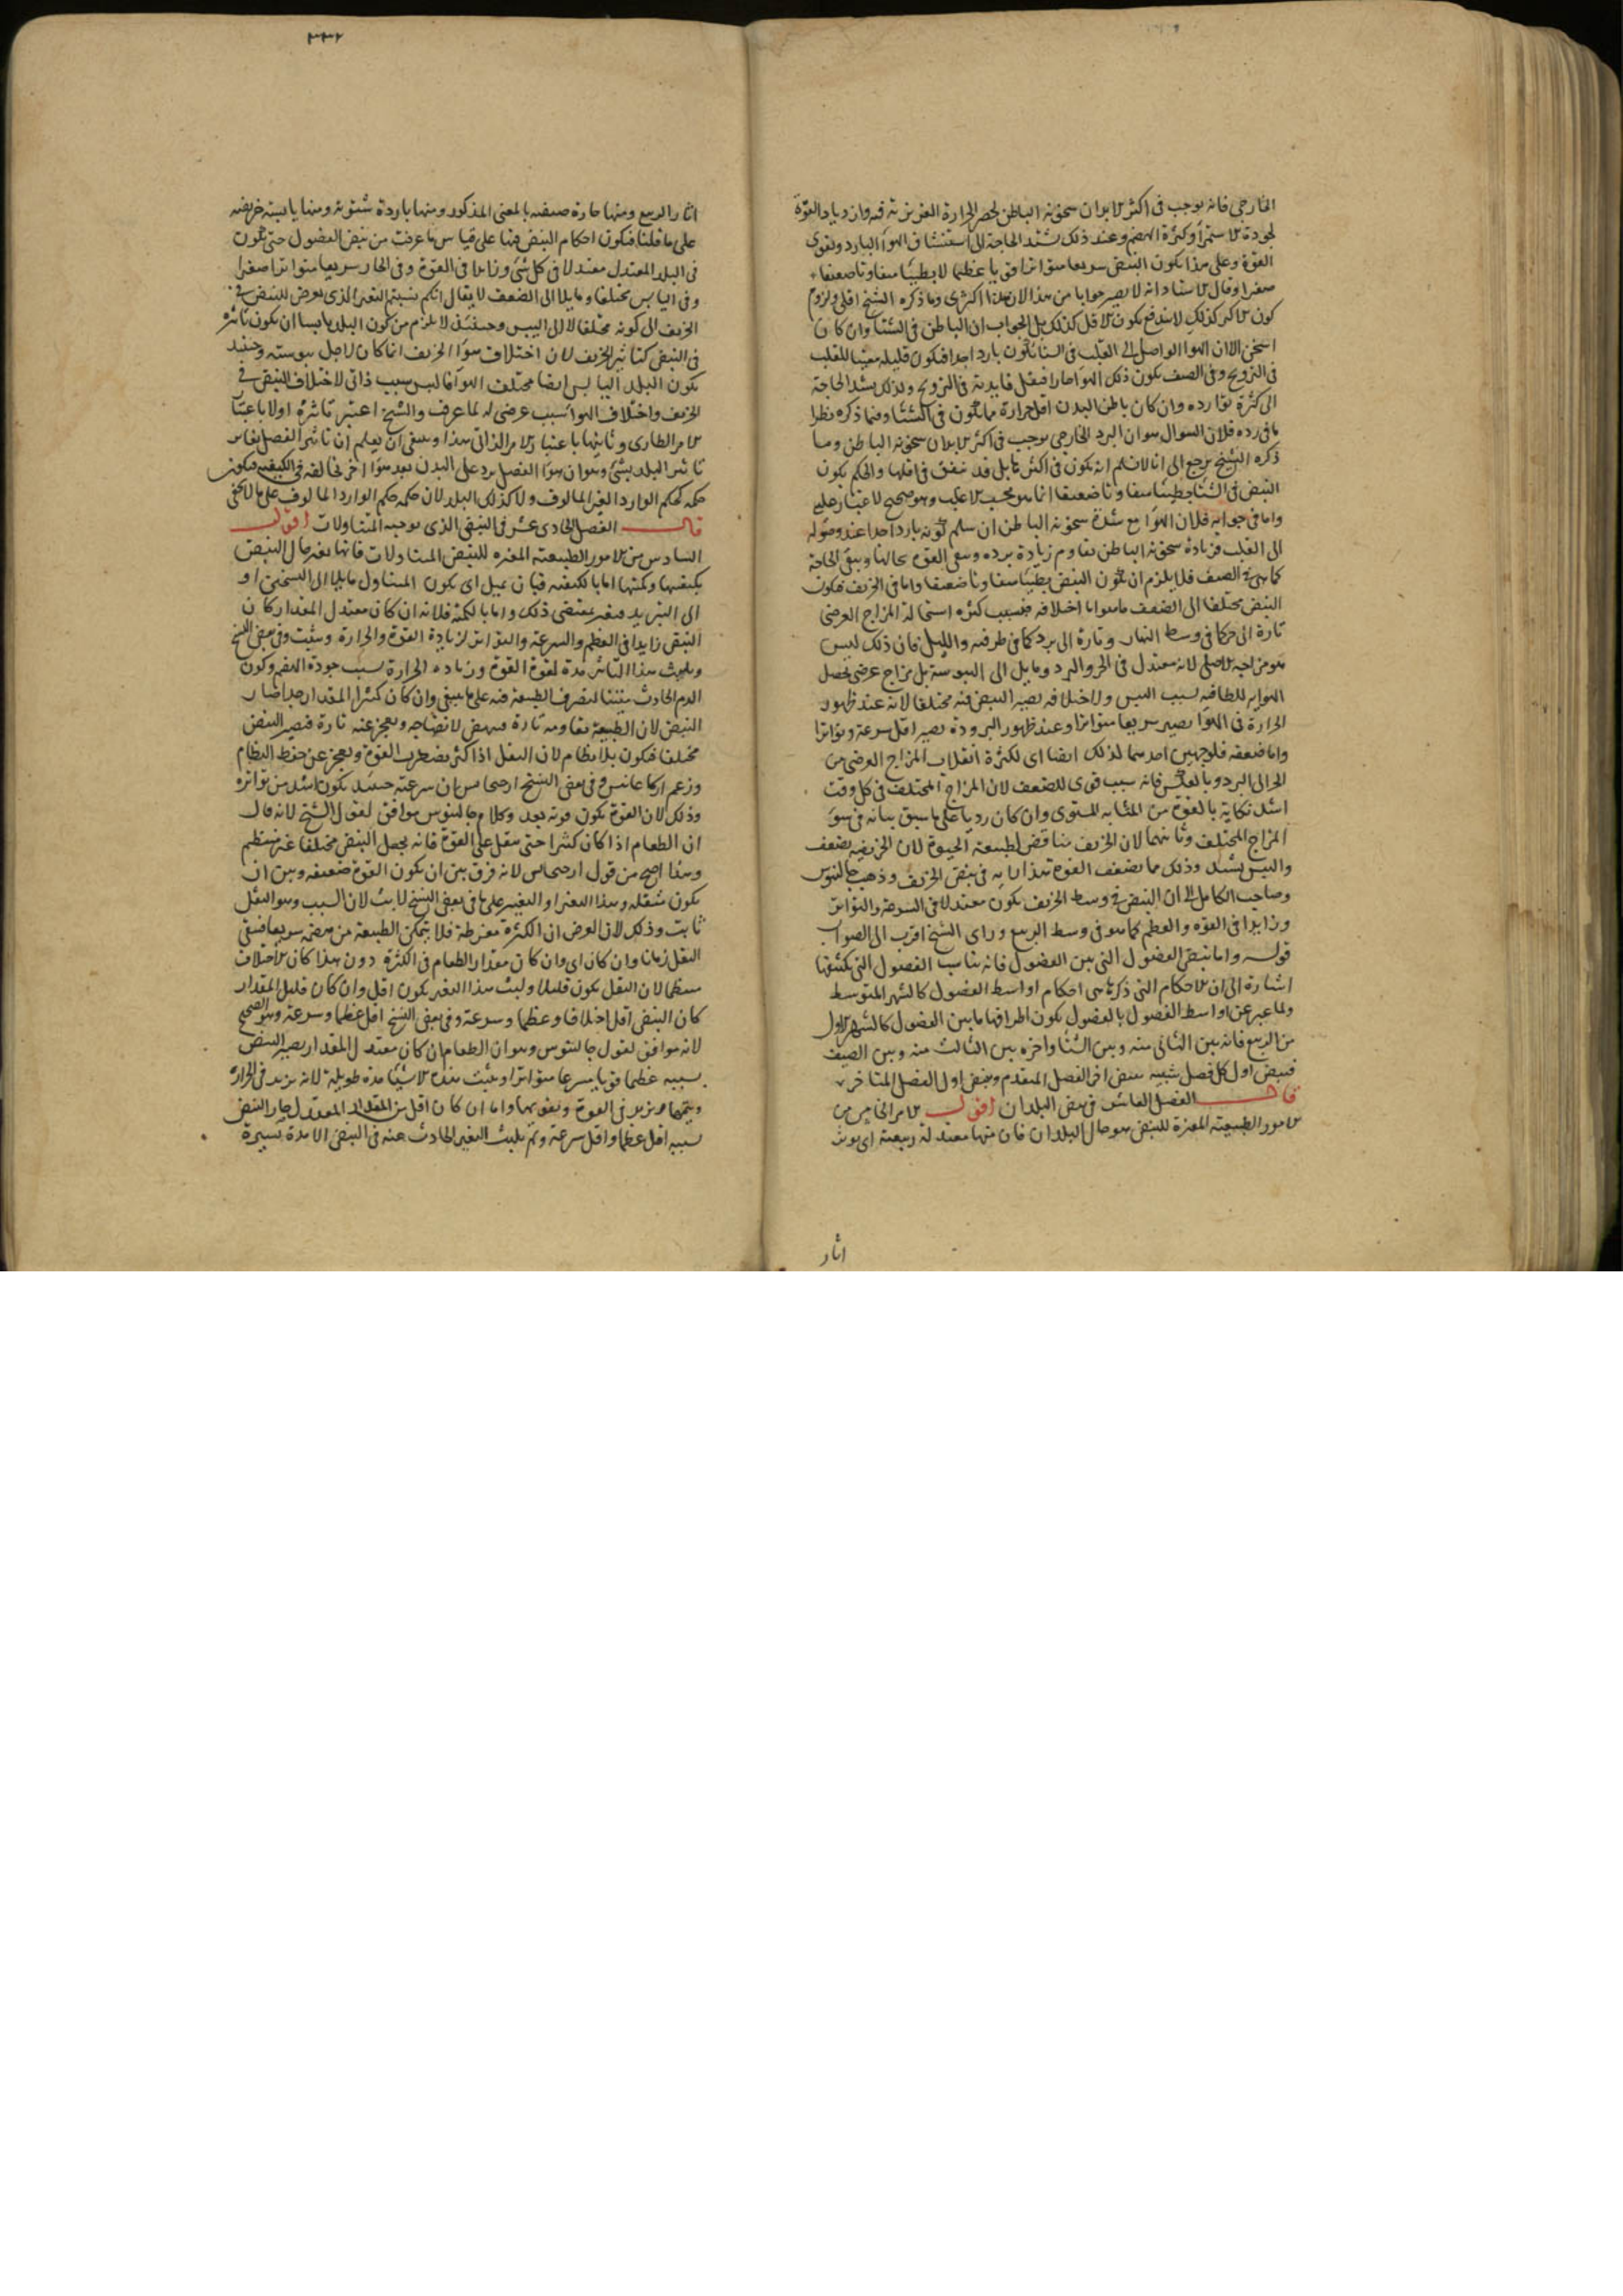 الخارجي فانه يوجب في اكثر الابدان سخونة الباطن لحصر الحرارة الغريزية فيه وازدياد القوة
لجودة الاستمراء وكثرة الهضم وعند ذلك تشتد الحاجة الى استنشاق الهواء البارد وتقوى
القوة وعلى هذا يكون النبض سريعا متواترا قويا عظيما لا بطيئا متفاوتا ضعيفا
صغيرا وقال الاستاذ انه لا يصير جوابا من هذا لان هذا اكثرى وما ذكره الشيخ اقلى ولزوم
كون الاكثر كذلك لا يندفع بكون الاقل كذلك بل الجواب ان الباطن في الشتا وان كان
اسخن الا ان الهوا الواصل الى القلب في الشتا يكون باردا جدا فيكون قليله مغنيا للقلب
في الترويح وفي الصيف يكون ذلك الهوا حارا فيقل فايدته في الترويح ولذلك يشتد الحاجة
الى كثرة تواترده وان كان باطن البدن اقل حرارة مما يكون في الشتا وفيما ذكره نظر
ما في رده فلان السوال هو ان البرد الخارجي يوجب في اكثر الابدان سخونة الباطن وما
ذكره الشيخ يرجع الى انا لا نسلم انه يكون في اكثر بل قد يتفق في اقلها والحكم بكون
النبض في الشتا بطيئا متفاوتا ضعيفا انما هو بحسب الاغلب وهو صحيح لا غبار عليه
واما في جوابه فلان الهوا مع شدة سخونة الباطن ان سلم كونه باردا جدا عند وصوله
الى القلب فزيادة سخونة الباطن تقاوم زيادة برده وتبقى القوة بحالها وتبقى الحاجة
كما هي في الصيف فلا يلزم ان يكون النبض بطيئا متفاوتا ضعيفا واما في الخريف فيكون
النبض مختلفا الى الضعف ما هو اما اختلافه فبسبب كثرة استحالة المزاج العرضي
تارة الى حر كما في وسط النهار وتارة الى برد كما في طرفيه والليل فان ذلك ليس
هو مزاجه الاصلى لانه معتدل في الحر والبرد ومايل الى اليبوسة بل مزاج عرضي يحصل
الهوايه للطافته بسبب اليبس ولاختلافه يصير النبض فيه مختلفا لانه عند ظهور
الحرارة في الهوا يصير سريعا متواترا وعند ظهور البرودة يصير اقل سرعة وتواترا
واما ضعفه فلوجهين احدهما لذلك ايضا اى لكثرة انقلاب المزاج العرضى من
الحر الى البرد وبالعكس فانه سبب قوى للضعف لان المزاج المختلف في كل وقت
اشد نكاية بالقوة من المتشابه المستوى وان كان رديا على ما سبق بيانه في سوء
المزاج المختلف وثانيهما لان الخريف مناقض لطبيعة الحيوة لان الخريفيه يضعف
واليبس يشتد وذلك مما يضعف القوة هذا رايه في نبض الخريف وذهب جالينوس
وصاحب الكامل الى ان النبض في وسط الخريف يكون معتدلا في السرعة والتواتر
وزايدا في القوه والعظم كما هو في وسط الربيع وراى الشيخ اقرب الى الصواب
قوله واما نبض الفصول التي بين الفصول فانه يناسب الفصول التي يكتنفها
اشارة الى ان الاحكام التي ذكرناها هي احكام اواسط الفصول كالشهر المتوسط
ولما عبر عن اواسط الفصول بالفصول يكون اطرافها ما بين الفصول كالشهر الاول
من الربيع فانه بين الثاني منه وبين الشتا واخره بين الثالث منه وبين الصيف
فنبض اول كل فصل شبيه بنبض اخر الفصل المتقدم ونبض اول الفصل المتاخر
قال الفصل العاشر في نبض البلدان اقول الامر الخامس من
الامور الطبيعية المغيرة للنبض هو حال البلدان فان منها معتدلة ربيعية اى يوثر
اثار
٣٣٢
اثار الربيع ومنها حارة صيفيه بالمعنى المذكور ومنها باردة شتوية ومنها يابسة خريفيه
على ما قلنا فيكون احكام النبض فيها على قياس ما عرفت من نبض الفصول حتى يكون
في البلد المعتدل معتدلا في كل شي وزايدا في القوة وفي الحار سريعا متواترا صغيرا
وفي اليابس مختلفا ومايلا الى الضعف لا يقال انكم نسبتم التغير الذى يعرض للنبض في
الخريف الى كونه مختلفا لا الى اليبس وحينئذ لا يلزم من كون البلد يابسا ان يكون تاثيره
في النبض كتاثير الخريف لان اختلاف هوا الخريف انما كان لاجل يبوسته وحينئذ
يكون البلد اليابس ايضا مختلف الهوا فاليبس سبب ذاتي لاختلاف النبض في
الخريف واختلاف الهوا سبب عرضى له لما عرف والشيخ اعتبر تاثيره اولا باعتبار
الامر الطارى وثانيها باعتبار الامر الذاتي هذا وينبغي ان يعلم ان تاثير الفصل يغاير
تاثير البلد بشي وهو ان هوا الفصل يرد على البدن بعد هوا اخر يخالفه في الكيفيه فيكون
حكمه كحكم الوارد الغير المالوف ولا كذلك البلد لان حكمه حكم الوارد المالوف على ما لا يخفى
قال الفصل الحادى عشر في النبض الذى يوجبه المتناولات اقول
السادس من الامور الطبيعية المغيره للنبض المتناولات فانها تغير حال النبض
بكيفيتها وكميتها اما بالكيفيه فبان يميل اى يكون المتناول مايلا الى التسخين او
الى التبريد فيغير بمقتضى ذلك واما بالكمية فلانه ان كان معتدل المقدار كان
النبض زايدا في العظم والسرعة والتواتر لزيادة القوة والحرارة ويثبت وفي بعض النسخ
ويلبث هذا التاثير مدة لقوة القوة وزياده الحرارة بسبب جودة الهضم وكون
الدم الحادث متينا لتصرف الطبيعة فيه على ما ينبغى وان كان كثير المقدار جدا صار
النبض لان الطبيعة تقاومه تارة فينهض لانضاجه وتعجز عنه تارة فيصير النبض
مختلفا فيكون بلا نظام لان الثقل اذا كثر يضطرب القوة ويعجز عن حفظ النظام
وزعم اركاغانيس وفي بعض النسخ ارجيجانس ان سرعته حينئذ يكون اشد من تواتره
وذلك لان القوة يكون قوته بعد وكلام جالينوس موافق لقول الشيخ لانه قال
ان الطعام اذا كان كثيرا حتى يثقل على القوة فانه يجعل النبض مختلفا غير منتظم
وهذا اصح من قول ارجيجانس لانه فرق بين ان يكون القوة ضعيفه وبين ان
يكون مثقله وهذا التغير او التغيير على ما في بعض النسخ لابث لان السبب وهو الثقل
ثابت وذلك لان الغرض ان الكثرة مفرطة فلا يتمكن الطبيعة من هضمه سريعا فيبقى
الثقل زمانا وان كان اى وان كان مقدار الطعام في الكثرة دون هذا كان الاختلاف
منتظما لان الثقل يكون قليلا ولبث هذا التغير يكون اقل وان كان قليل المقدار
كان النبض اقل اختلافا وعظما وسرعة وفي بعض النسخ اقل عظما وسرعة وهو الصحيح
لانه موافق لقول جالينوس وهو ان الطعام ان كان معتدل المقدار يصير النبض
بسببه عظيما قويا سريعا متواترا ويثبت هذه الاشيا مدة طويلة لانه يزيد في الحرارة
وينميها ويزيد في القوة ويقويها واما ان كان اقل من المقدار المعتدل صار النبض
بسببه اقل عظما واقل سرعة ولم يلبث التغير الحادث عنه في النبض الا مدة يسيرة